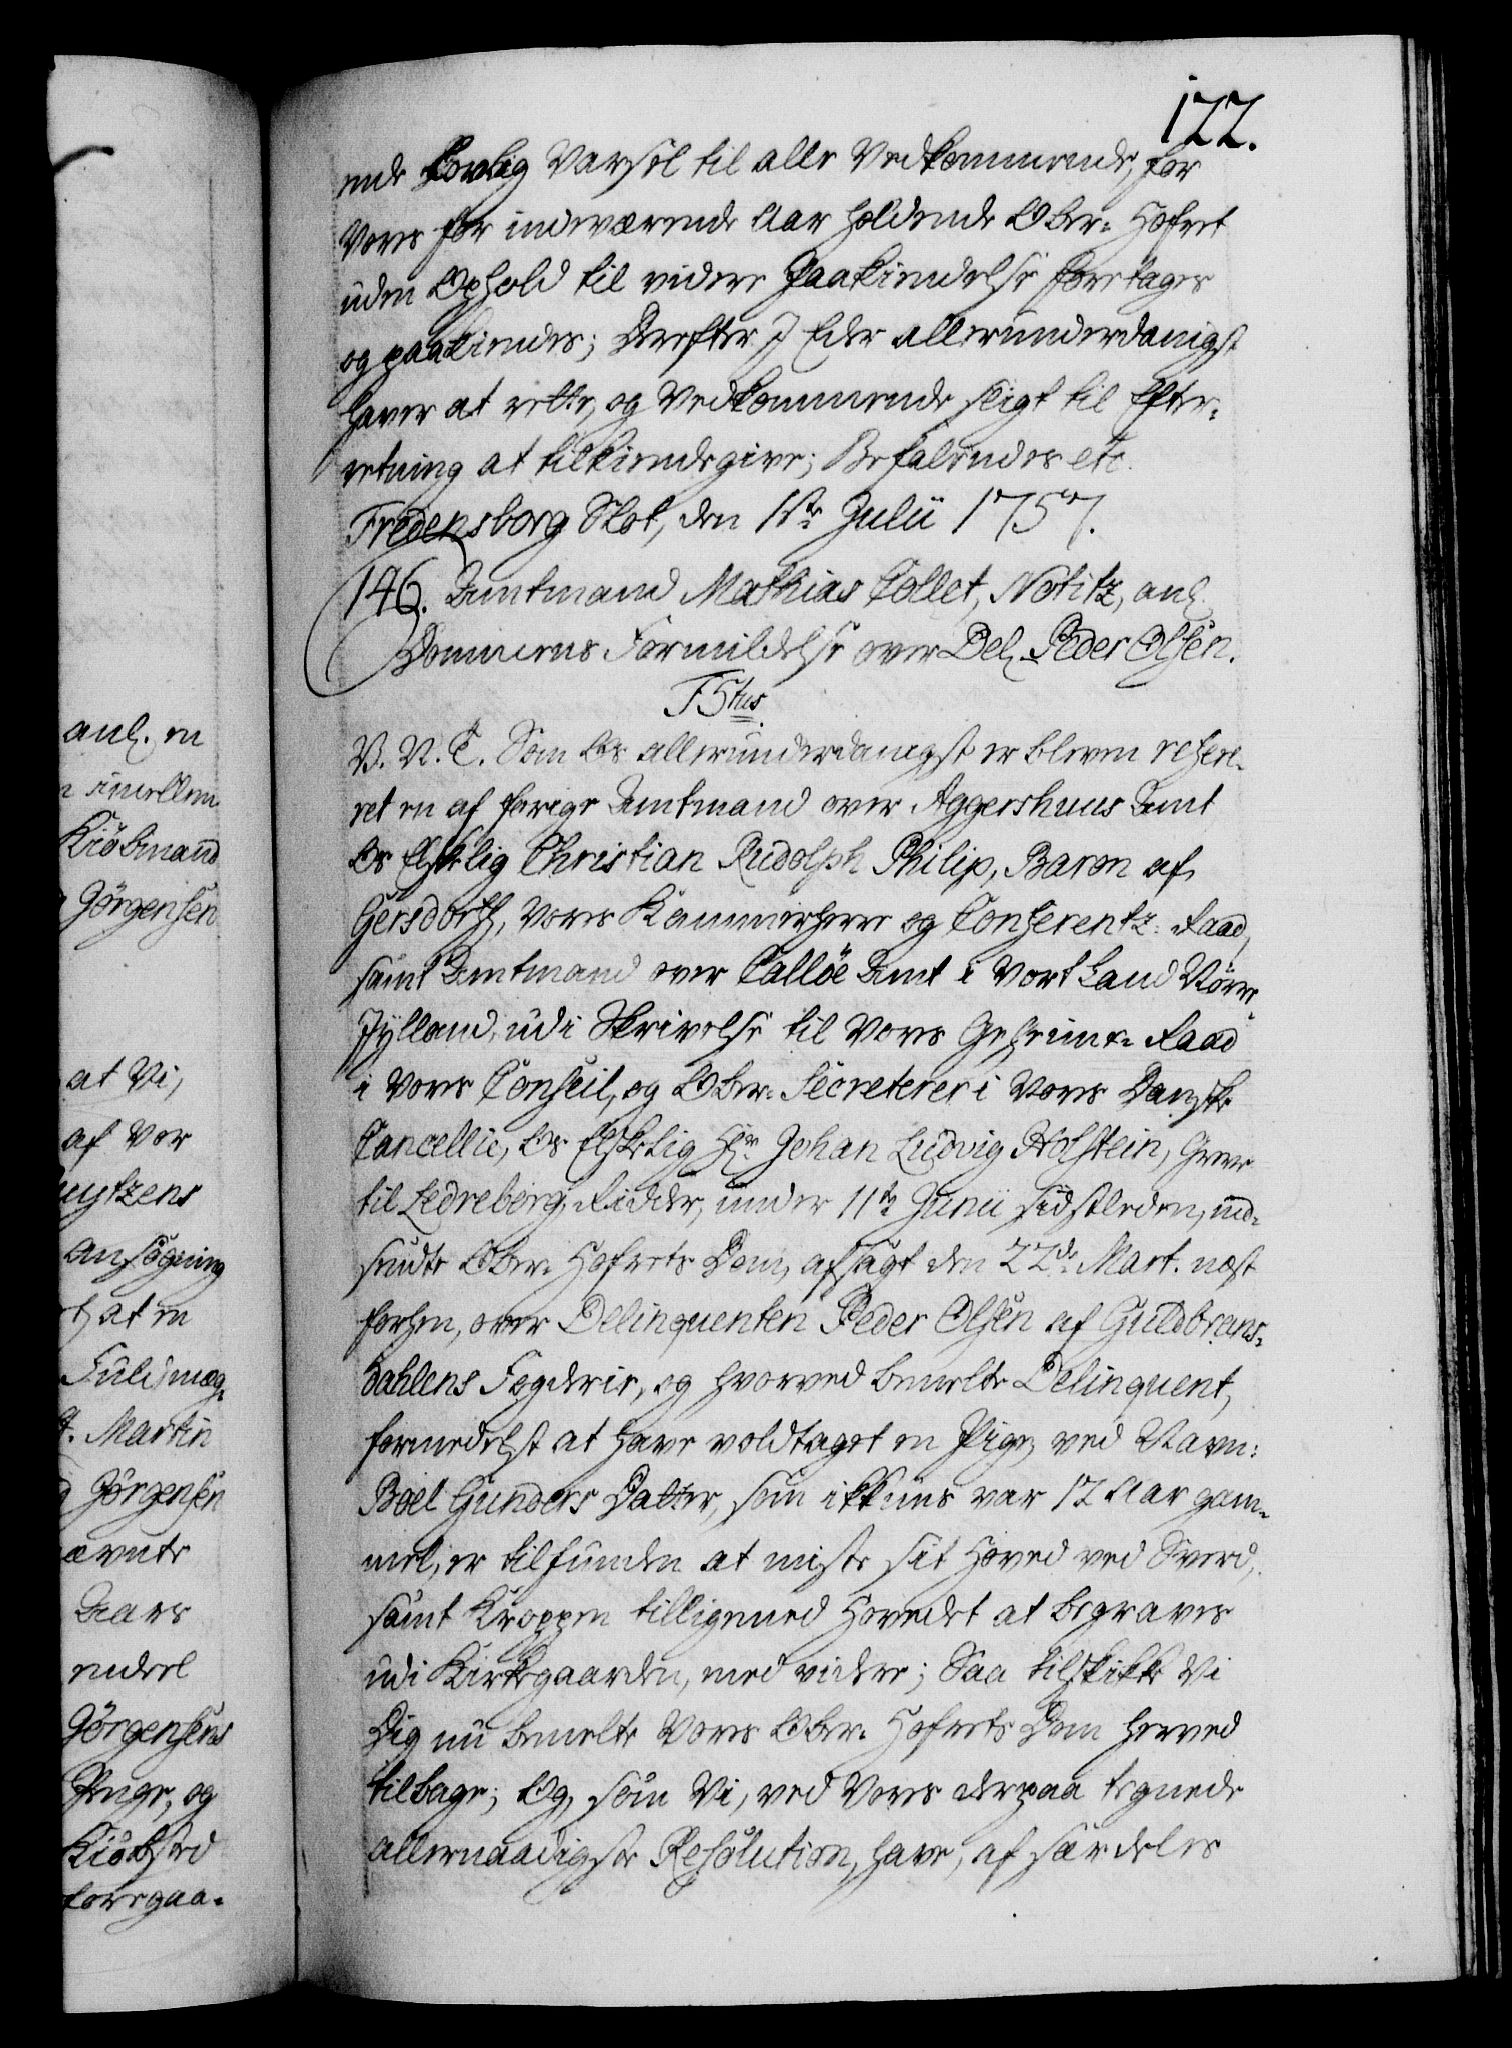 122.
ende Lovlig Varsel til alle Vedkommende, for
Vores for indeværende Aar holdende Ober-Hofret
uden Ophold til videre Paakiendelse foretages
og paakiendes; Derefter I Eder allerunderdanigst
haver at rette, og Vedkommende sligt til Efter-
retning at tilkiendegive; Befalendes etc.
Fredensborg Slot, den 1ste Julii 1757.
146. Amtmand Mathias Collet, Notitz, anl.
Dommens Formildelse over Del. Peder Olsen.
F5tus.
V. N. T. Som Os allerunderdanigst er bleven refere-
ret en af forige Amtmand over Aggershuus Amt
Os Elskelig Christian Rudolph Philip, Baron af
Gersdorff, Vores Kammerherre og Conferentz-Raad,
samt Amtmand over Calløe Amt i Vort Land Nørre-
Jylland, udi Skrivelse til Vores Geheime-Raad
i Vores Conseil, og Ober-Secreterer i Vores Danske
Cancellie, Os Elskelig Hr. Johan Ludvig Holstein, Greve
til Ledreborg, Ridder, under 11te Junii sidstleden, ind-
sendte Ober-Hofrets Dom, afsagt den 22de Mart. næst
forhen, over Delinquenten Peder Olsen af Guldbrans-
dahlens Fogderie, og hvorved bemelte Delinquent,
formedelst at have voldtaget en Pige, ved Navn:
Boel Gunders Datter, som ikkuns var 12 Aar gam-
mel, er tilfunden at miste sit Hoved ved Sverd,
samt Kroppen tilligemed Hovedet at begraves
udi Kirkegaarden, med videre; Saa tilskikke Vi
Dig nu bemelte Vores Ober-Hofrets Dom herved
tilbage; Og, som Vi, ved Vores derpaa tegnede
allernaadigste Resolution, have, af særdeles
anl. en
imellem
Kiøbmand
Jørgensen
at Vi,
af Vor
Ansøgning
at en
Fuldmæg-
Martin
Jørgensen
Aars
endeel
Jørgensens
Penge, og
Kiøbsted
foregaa-